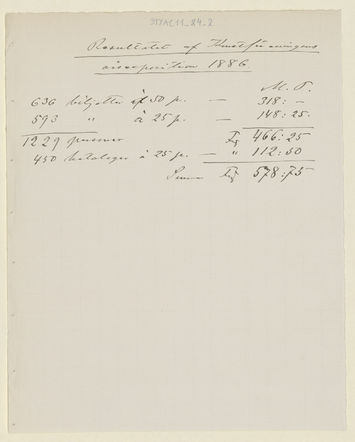 Resultatet af Konstföreningens
exposition 1886.
M. P.
636 biljetter à 50 p. — 318: –
593 " à 25 p. — 148: 25.
1229 personer 466: 25
450 kataloger à 25 p. — " 112: 50
Summa 578: 75